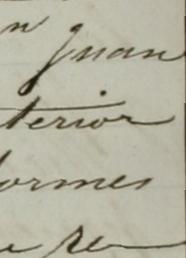 n Juan
terior
formes
e re